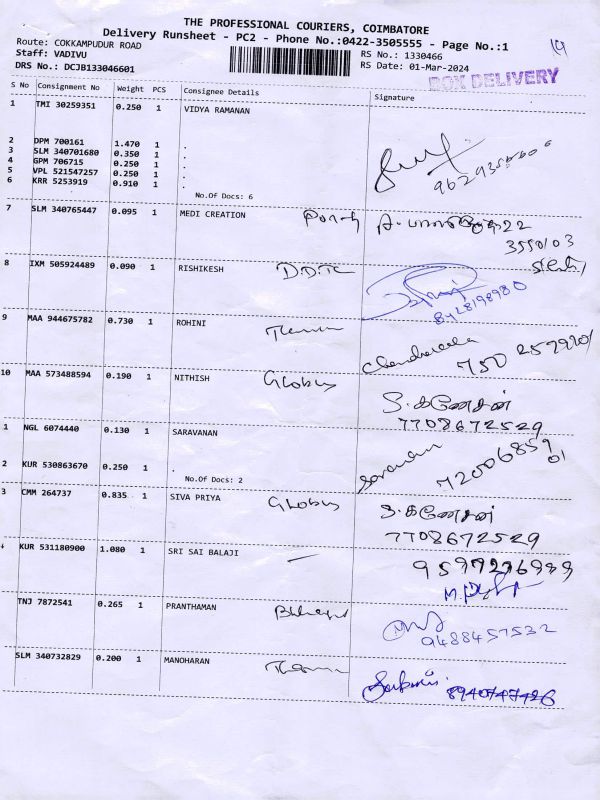 THE PROFESSIONAL COURIERS, COIMBATORE
Delivery Runsheet - PC2 - Phone No.:0422-3505555 - Page No.:1
Route: COKKAMPUDUR ROAD
Staff: VADIVU
DRS No.: DCJB133046601
RS No.: 1330466
RS Date: 01-Mar-2024
BOX DELIVERY
S No Consignment No Weight PCS Consignee Details Signature
1 TMI 30259351 0.250 1 VIDYA RAMANAN
2 DPM 700161 1.470 1 .
3 SLM 340701680 0.350 1 .
4 GPM 706715 0.250 1 .
5 VPL 521547257 0.250 1 .
6 KRR 5253919 0.910 1 .
No.Of Docs: 6
7 SLM 340765447 0.095 1 MEDI CREATION
8 IXM 505924489 0.090 1 RISHIKESH
9 MAA 944675782 0.730 1 ROHINI
10 MAA 573488594 0.190 1 NITHISH Globus
S.கணேசன்
7708672529
1 NGL 6074440 0.130 1 SARAVANAN
2 KUR 530863670 0.250 1 .
No.Of Docs: 2
Saravanan
3 CMM 264737 0.835 1 SIVA PRIYA Globus
S.கணேசன்
7708672529
KUR 531180900 1.080 1 SRI SAI BALAJI
TNJ 7872541 0.265 1 PRANTHAMAN
9488457532
SLM 340732829 0.200 1 MANOHARAN
8940747426